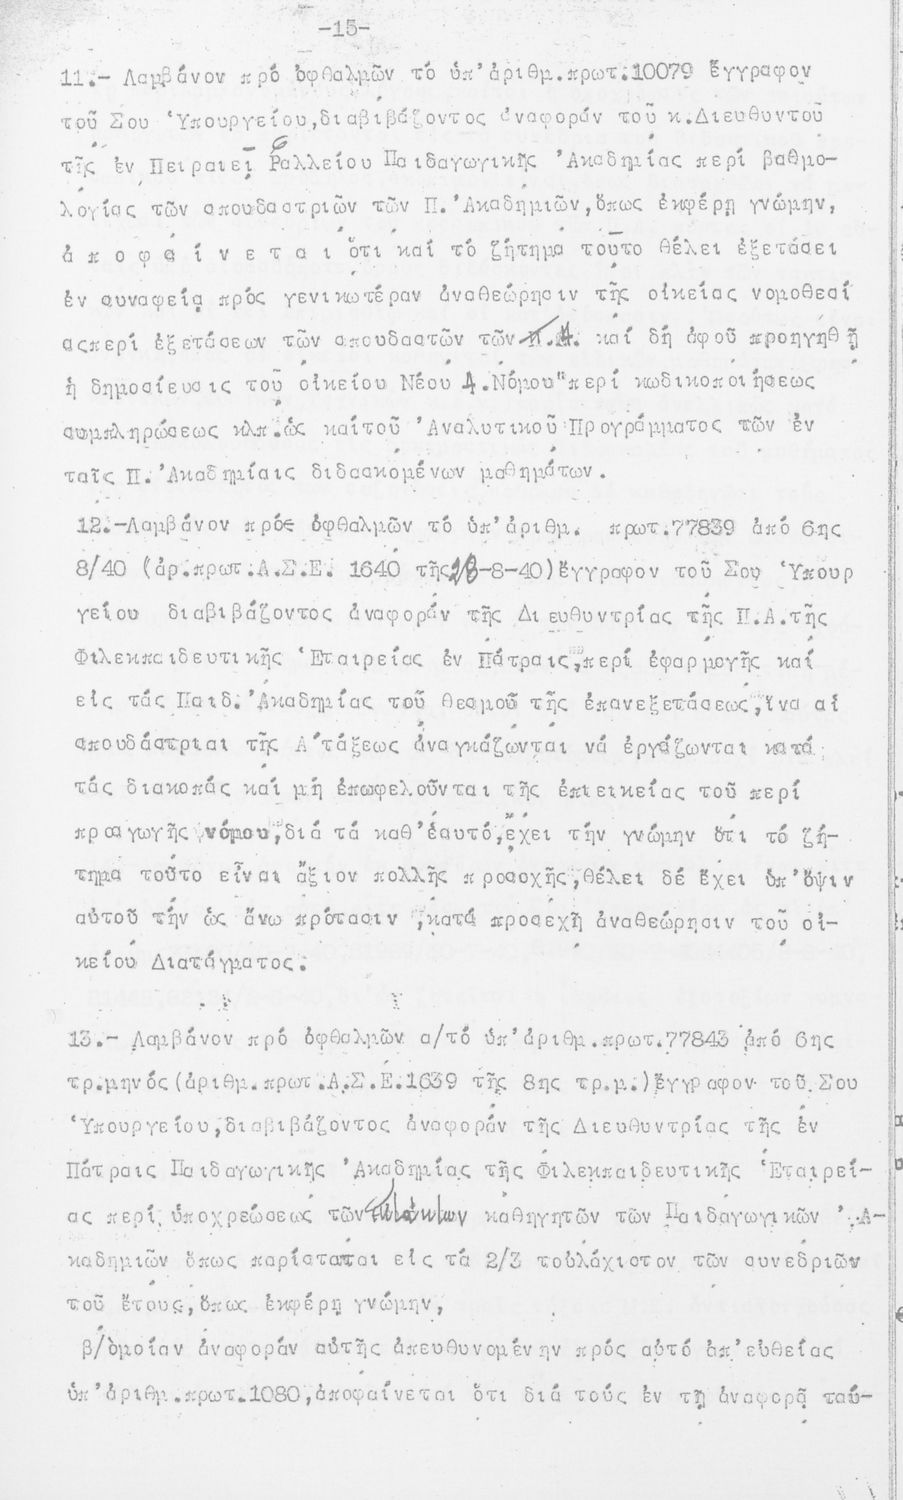 -15-
11.- Λαμβάνον πρό ὀφθαλμῶν τό ὑπ'ἀριθμ.πρωτ.10079 ἔγγραφον
τοῦ Σου Ὑπουργείου,διαβιβάζοντος ἀναφοράν τοῦ κ.Διευθυντοῦ
τῆς ἐν Πειραιεῖ Ραλλείου Παιδαγωγικῆς Ἀκαδημίας περί βαθμο-
λογίας τῶν σπουδαστριῶν τῶν Π.Ἀκαδημιῶν,ὅπως ἐκφέρῃ γνώμην,
ἀ π ο φ α ί ν ε τ α ι ὅτι καί τό ζήτημα τοῦτο θέλει ἐξετάσει
ἐν συναφείᾳ πρός γενικωτέραν ἀναθεώρησιν τῆς οἰκείας νομοθεσί
αςπερί ἐξετάσεων τῶν σπουδαστῶν τῶν Π.Α. καί δή ἀφοῦ προηγηθῇ
ἡ δημοσίευσις τοῦ οἰκείου Νέου Α.Νόμου"περί κωδικοποιήσεως
συμπληρώσεως κλπ.ὡς καίτοῦ Ἀναλυτικοῦ Προγράμματος τῶν ἐν
ταῖς Π.Ἀκαδημίαις διδασκομένων μαθημάτων.
12.-Λαμβάνον πρός ὀφθαλμῶν τό ὑπ'ἀριθμ. πρωτ.77839 ἀπό 6ης
8/40 (ἀρ.πρωτ.Α.Σ.Ε. 1640 τῆς 28-8-40)ἔγγραφον τοῦ Σου Ὑπουρ
γείου διαβιβάζοντος ἀναφοράν τῆς Διευθυντρίας τῆς Π.Α.τῆς
Φιλεκπαιδευτικῆς Ἑταιρείας ἐν Πάτραις,περί ἐφαρμογῆς καί
εἰς τάς Παιδ.Ἀκαδημίας τοῦ θεσμοῦ τῆς ἐπανεξετάσεως,ἵνα αἱ
σπουδάστριαι τῆς Α'τάξεως ἀναγκάζωνται νά ἐργάζωνται κατά
τάς διακοπάς καί μή ἐπωφελοῦνται τῆς ἐπιεικείας τοῦ περί
προαγωγῆς νόμου,διά τά καθ'ἑαυτό,ἔχει τήν γνώμην ὅτι τό ζή-
τημα τοῦτο εἶναι ἄξιον πολλῆς προσοχῆς,θέλει δέ ἔχει ὑπ'ὄψιν
αὐτοῦ τήν ὡς ἄνω πρότασιν ,κατά προσεχῆ ἀναθεώρησιν τοῦ οἰ-
κείου Διατάγματος.
13.- Λαμβάνον πρό ὀφθαλμῶν α/τό ὑπ'ἀριθμ.πρωτ.77843 ἀπό 6ης
τρ.μηνός(ἀριθμ.πρωτ.Α.Σ.Ε.1639 τῆς 8ης τρ.μ.)ἔγγραφον τοῦ Σου
Ὑπουργείου,διαβιβάζοντος ἀναφοράν τῆς Διευθυντρίας τῆς ἐν
Πάτραις Παιδαγωγικῆς Ἀκαδημίας τῆς Φιλεκπαιδευτικῆς Ἑταιρεί-
ας περί ὑποχρεώσεως τῶν τακτικῶν καθηγητῶν τῶν Παιδαγωγικῶν Ἀ-
καδημιῶν ὅπως παρίσταται εἰς τά 2/3 τοὐλάχιστον τῶν συνεδριῶν
τοῦ ἔτους,ὅπως ἐκφέρῃ γνώμην,
β/ὁμοίαν ἀναφοράν αὐτῆς ἀπευθυνομένην πρός αὐτό ἀπ'εὐθείας
ὑπ'ἀριθμ.πρωτ.1080,ἀποφαίνεται ὅτι διά τούς ἐν τῇ ἀναφορᾷ ταύ-